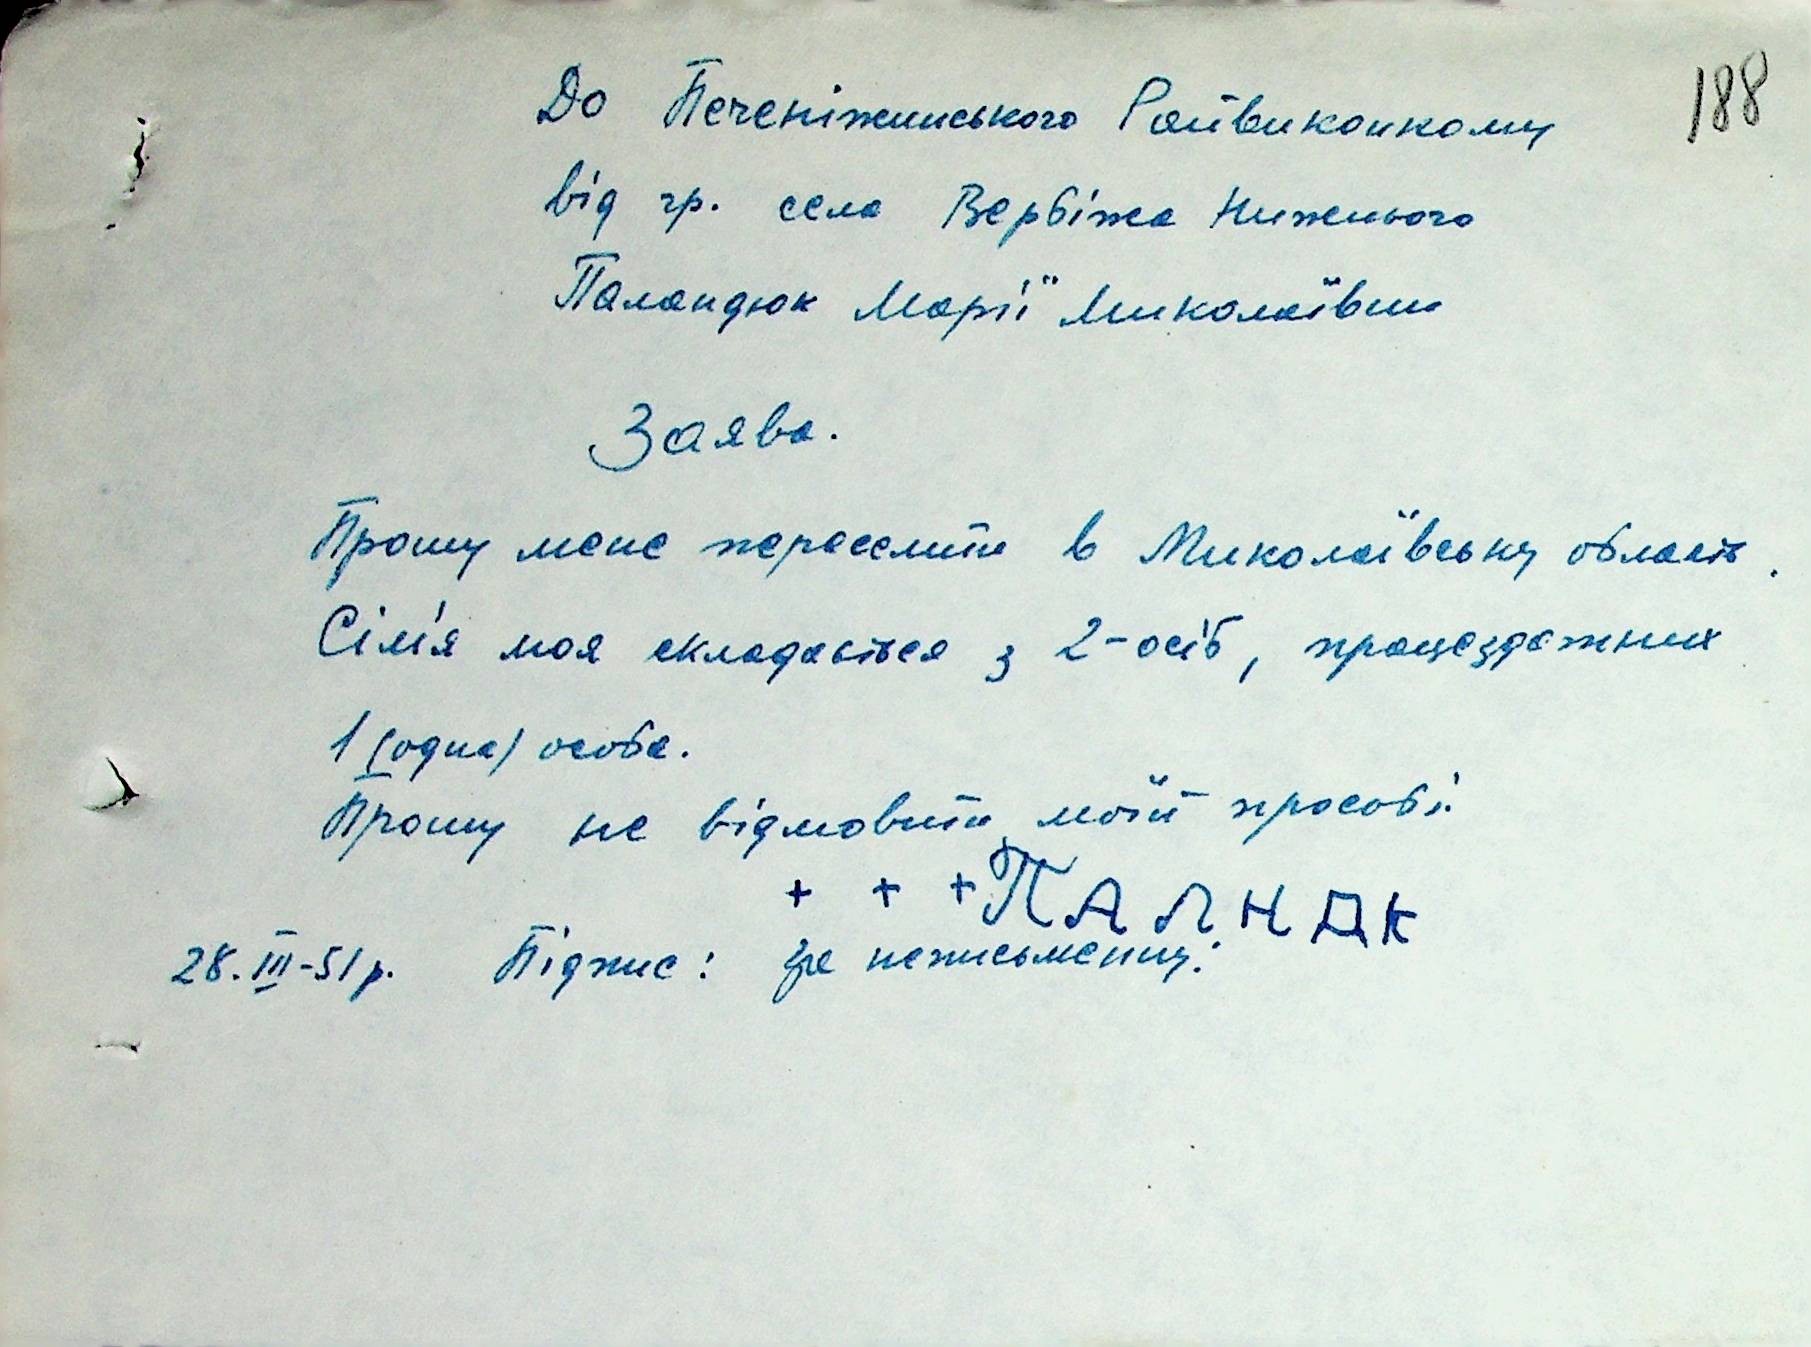 188
До Печеніжинського Райвиконкому
від гр. села Вербіжа Нижнього
Паландюк Марії Миколаївни
Заява.
Прошу мене переселити в Миколаївську область.
Сім'я моя складається з 2-осіб, працездатних
1 (одна) особа.
Прошу не відмовити моїй просьбі.
+ + + ПАЛНДК
28.III-51р. Підпис: за неписьменну: